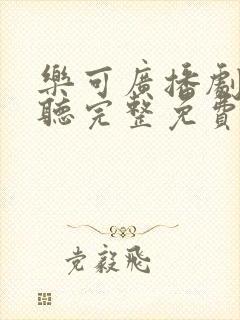 樂可廣播劇
聽完整免費
党毅飛